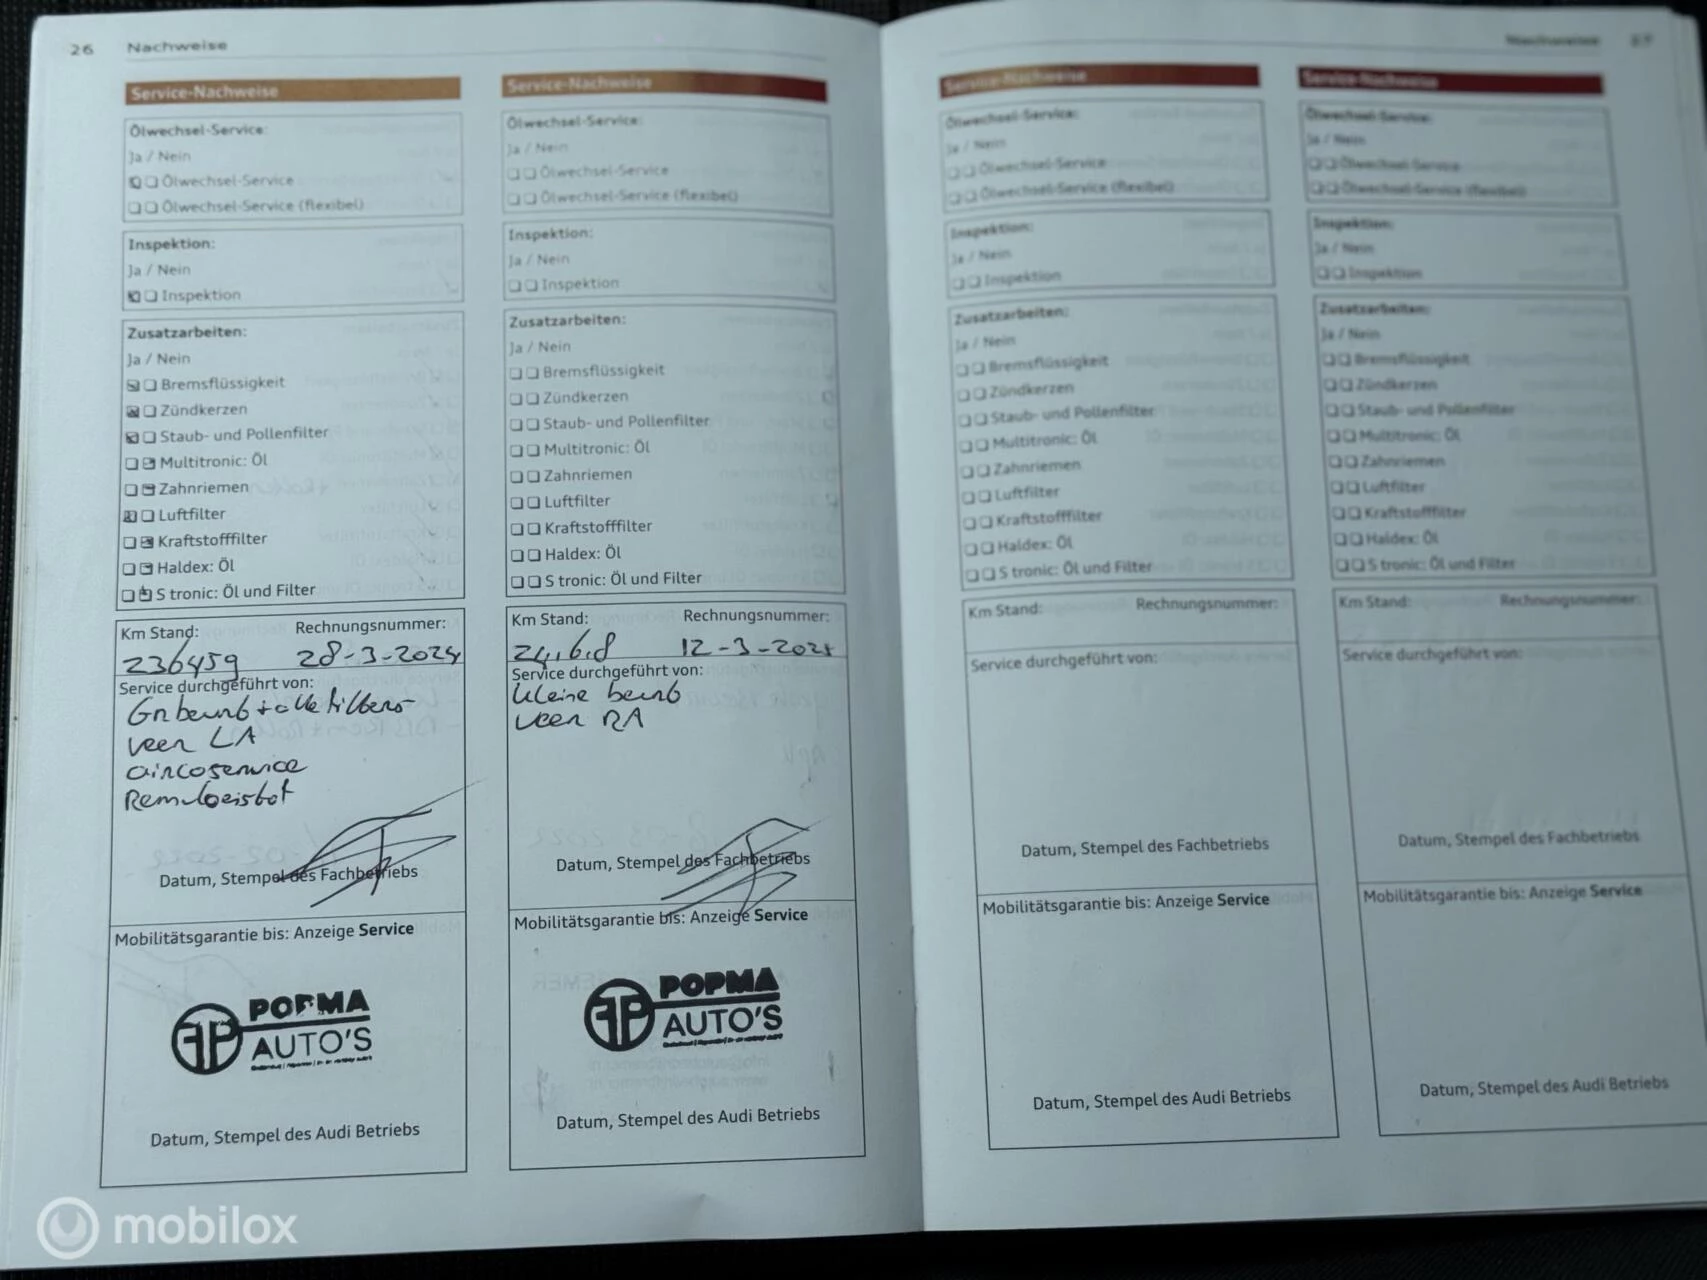 26 Nachweise
Service-Nachweise
Ölwechsel-Service:
Ja / Nein
Ölwechsel-Service
Ölwechsel-Service (flexibel)
Inspektion:
Ja / Nein
Inspektion
Zusatzarbeiten:
Ja / Nein
Bremsflüssigkeit
Zündkerzen
Staub- und Pollenfilter
Multitronic: Öl
Zahnriemen
Luftfilter
Kraftstofffilter
Haldex: Öl
S tronic: Öl und Filter
Km Stand: Rechnungsnummer:
236459 28-3-2024
Service durchgeführt von:
Gr beurt + alle filters
veer LA
aircoservice
Remvloeistof
Datum, Stempel des Fachbetriebs
Mobilitätsgarantie bis: Anzeige Service
POPMA
AUTO'S
Datum, Stempel des Audi Betriebs
Service-Nachweise
Ölwechsel-Service:
Ja / Nein
Ölwechsel-Service
Ölwechsel-Service (flexibel)
Inspektion:
Ja / Nein
Inspektion
Zusatzarbeiten:
Ja / Nein
Bremsflüssigkeit
Zündkerzen
Staub- und Pollenfilter
Multitronic: Öl
Zahnriemen
Luftfilter
Kraftstofffilter
Haldex: Öl
S tronic: Öl und Filter
Km Stand: Rechnungsnummer:
12-3-202
Service durchgeführt von:
kleine beurt
veer RA
Datum, Stempel des Fachbetriebs
Mobilitätsgarantie bis: Anzeige Service
POPMA
AUTO'S
Datum, Stempel des Audi Betriebs
Nachweise 27
Service-Nachweise
Ölwechsel-Service:
Ja / Nein
Ölwechsel-Service
Ölwechsel-Service (flexibel)
Inspektion:
Ja / Nein
Inspektion
Zusatzarbeiten:
Ja / Nein
Bremsflüssigkeit
Zündkerzen
Staub- und Pollenfilter
Multitronic: Öl
Zahnriemen
Luftfilter
Kraftstofffilter
Haldex: Öl
S tronic: Öl und Filter
Km Stand: Rechnungsnummer:
Service durchgeführt von:
Datum, Stempel des Fachbetriebs
Mobilitätsgarantie bis: Anzeige Service
Datum, Stempel des Audi Betriebs
Service-Nachweise
Ölwechsel-Service:
Ja / Nein
Ölwechsel-Service
Ölwechsel-Service (flexibel)
Inspektion:
Ja / Nein
Inspektion
Zusatzarbeiten:
Ja / Nein
Bremsflüssigkeit
Zündkerzen
Staub- und Pollenfilter
Multitronic: Öl
Zahnriemen
Luftfilter
Kraftstofffilter
Haldex: Öl
S tronic: Öl und Filter
Km Stand: Rechnungsnummer:
Service durchgeführt von:
Datum, Stempel des Fachbetriebs
Mobilitätsgarantie bis: Anzeige Service
Datum, Stempel des Audi Betriebs
mobilox